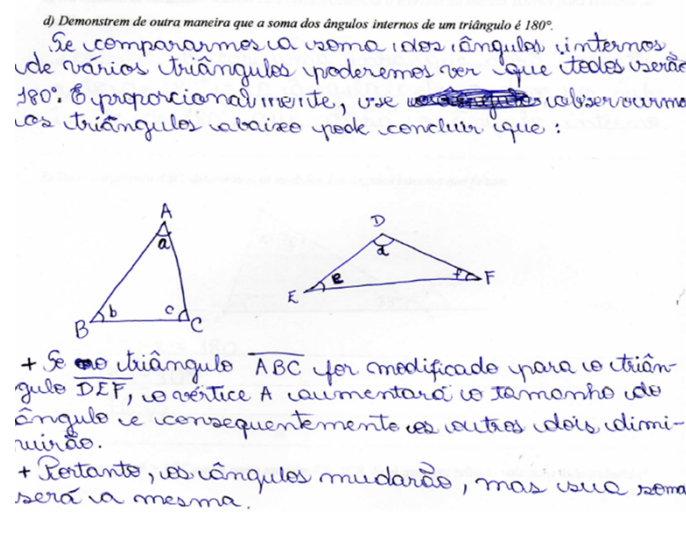 d) Demonstrem de outra maneira que a soma dos ângulos internos de um triângulo é 180°.
Se compararmos a soma dos ângulos internos
de vários triângulos poderemos ver que todos serão
180°. E proporcionalmente, se observarmo
os triângulos abaixo pode concluir que:
A
a
b
c
B
C
D
d
e
f
E
F
+ Se o triângulo ABC for modificado para o triân-
gulo DEF, o vértice A aumentará o tamanho do
ângulo e consequentemente os outros dois dimi-
nuirão.
+ Portanto, os ângulos mudarão, mas sua soma
será a mesma.